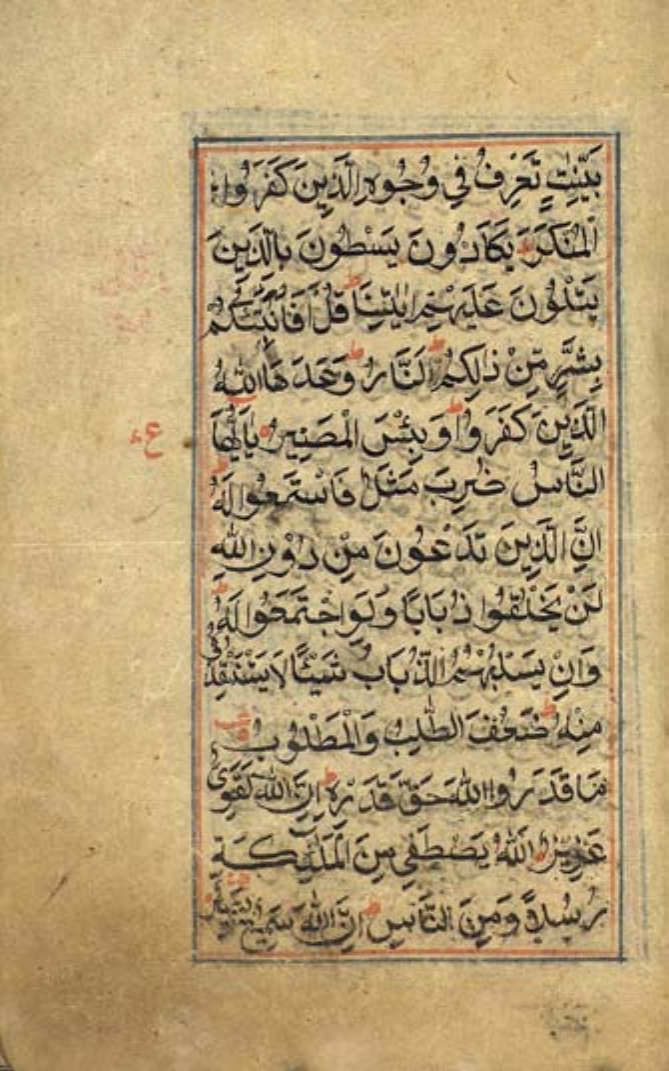 بَيِّنٰتٍ تَعْرِفُ فِي وُجُوهِ الَّذِينَ كَفَرُوا
الْمُنْكَرَ ط يَكَادُونَ يَسْطُونَ بِالَّذِينَ
يَتْلُونَ عَلَيْهِمْ اٰيٰتِنَا ط قُلْ اَفَاُنَبِّئُكُمْ
بِشَرٍّ مِّنْ ذٰلِكُمُ ط اَلنَّارُ ط وَعَدَهَا اللّٰهُ
الَّذِينَ كَفَرُوا ط وَبِئْسَ الْمَصِيرُ يٰاَيُّهَا
النَّاسُ ضُرِبَ مَثَلٌ فَاسْتَمِعُوا لَهُ ط
اِنَّ الَّذِينَ تَدْعُونَ مِنْ دُوْنِ اللّٰهِ
لَنْ يَخْلُقُوا ذُبَابًا وَلَوِ اجْتَمَعُوا لَهُ ط
وَاِنْ يَسْلُبْهُمُ الذُّبَابُ شَيْئًا لَا يَسْتَنْقِذُوهُ
مِنْهُ ط ضَعُفَ الطَّالِبُ وَالْمَطْلُوبُ
مَا قَدَرُوا اللّٰهَ حَقَّ قَدْرِهٖ ط اِنَّ اللّٰهَ لَقَوِىٌّ
عَزِيزٌ اَللّٰهُ يَصْطَفِي مِنَ الْمَلٰٓئِكَةِ
رُسُلًا وَّمِنَ النَّاسِ ط اِنَّ اللّٰهَ سَمِيعٌ بَصِيرٌ
ع